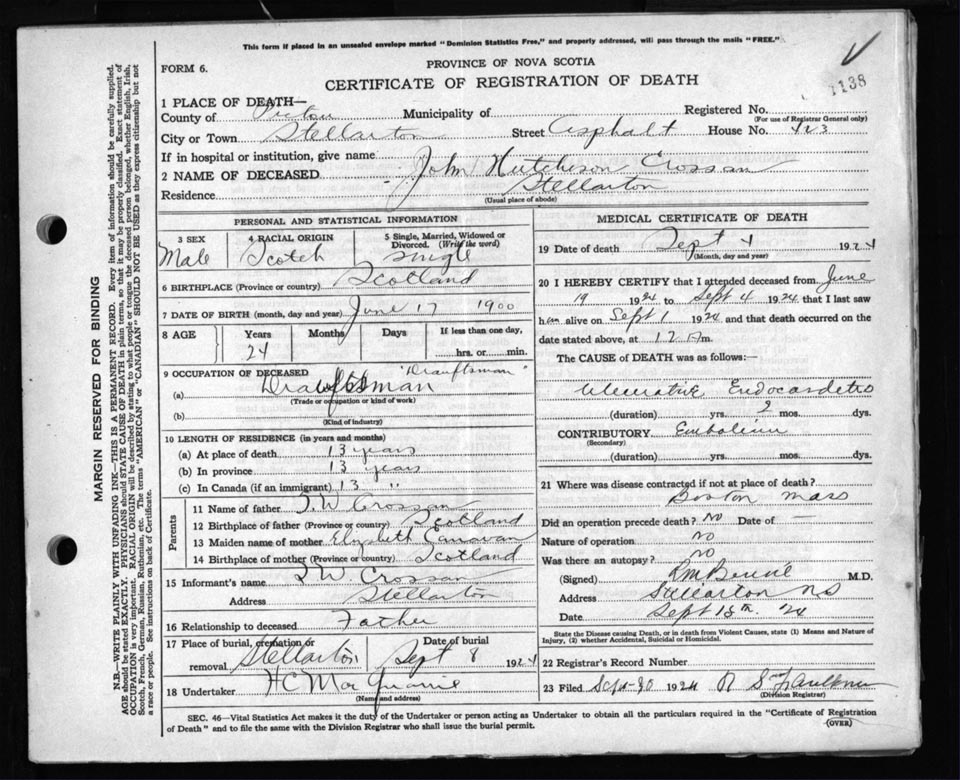 This form if placed in an unsealed envelope marked "Dominion Statistics Free," and properly addressed, will pass through the mails "FREE."
PROVINCE OF NOVA SCOTIA
FORM 6.
CERTIFICATE OF REGISTRATION OF DEATH
1138
1 PLACE OF DEATH—
County of Pictou Municipality of
Registered No.
(For use of Registrar General only)
City or Town Stellarton Street Asphalt House No. 423
If in hospital or institution, give name
2 NAME OF DECEASED John Hutchison Crossan
Residence Stellarton
(Usual place of abode)
PERSONAL AND STATISTICAL INFORMATION
3 SEX
Male
4 RACIAL ORIGIN
Scotch
5 Single, Married, Widowed or Divorced. (Write the word)
Single
6 BIRTHPLACE (Province or country) Scotland
7 DATE OF BIRTH (month, day and year) June 17 1900
8 AGE Years Months Days If less than one day,
24 hrs. or min.
9 OCCUPATION OF DECEASED "Drauftsman"
(a) Drauftsman
(Trade or occupation or kind of work)
(b)
(Kind of industry)
10 LENGTH OF RESIDENCE (in years and months)
(a) At place of death 13 years
(b) In province 13 years
(c) In Canada (if an immigrant) 13 "
Parents
11 Name of father J. W. Crossan
12 Birthplace of father (Province or country) Scotland
13 Maiden name of mother Elizabeth Canavan
14 Birthplace of mother (Province or country) Scotland
15 Informant's name J W. Crossan
Address Stellarton
16 Relationship to deceased Father
17 Place of burial, cremation or removal Stellarton Date of burial Sept 8 1924
18 Undertaker H C MacQuarrie
(Name and address)
MEDICAL CERTIFICATE OF DEATH
19 Date of death Sept 4 1924
(Month, day and year)
20 I HEREBY CERTIFY that I attended deceased from June
19 1924 to Sept 4 1924 that I last saw
him alive on Sept 1 1924 and that death occurred on
date stated above, at 12 A.m.
The CAUSE OF DEATH was as follows:—
Ulcerative Endocardetis
(duration) yrs. 2 mos. dys.
CONTRIBUTORY Embolism
(Secondary)
(duration) yrs. mos. dys.
21 Where was disease contracted if not at place of death?
Boston Mass
Did an operation precede death? No Date of —
Nature of operation No
Was there an autopsy? No
(Signed) M.D.
Address Stellarton NS
Date Sept 15th '24
State the Disease causing Death, or in death from Violent Causes, state (1) Means and Nature of Injury, (2) whether Accidental, Suicidal or Homicidal.
22 Registrar's Record Number
23 Filed Sept 30 1924 R S Faulkner
(Division Registrar)
SEC. 46—Vital Statistics Act makes it the duty of the Undertaker or person acting as Undertaker to obtain all the particulars required in the "Certificate of Registration
of Death" and to file the same with the Division Registrar who shall issue the burial permit.
(OVER)
MARGIN RESERVED FOR BINDING
N.B.—WRITE PLAINLY WITH UNFADING INK—THIS IS A PERMANENT RECORD. Every item of information should be carefully supplied.
AGE should be stated EXACTLY. PHYSICIANS should STATE CAUSE OF DEATH in plain terms, so that it may be properly classified. Exact statement of
OCCUPATION is very important. RACIAL ORIGIN will be described by stating to what people or tongue the deceased person belonged, whether English, Irish,
Scotch, French, German, Russian, Ruthenian, etc. The terms "AMERICAN" or "CANADIAN" SHOULD NOT BE USED as they express citizenship but not
a race or people. See instructions on back of Certificate.